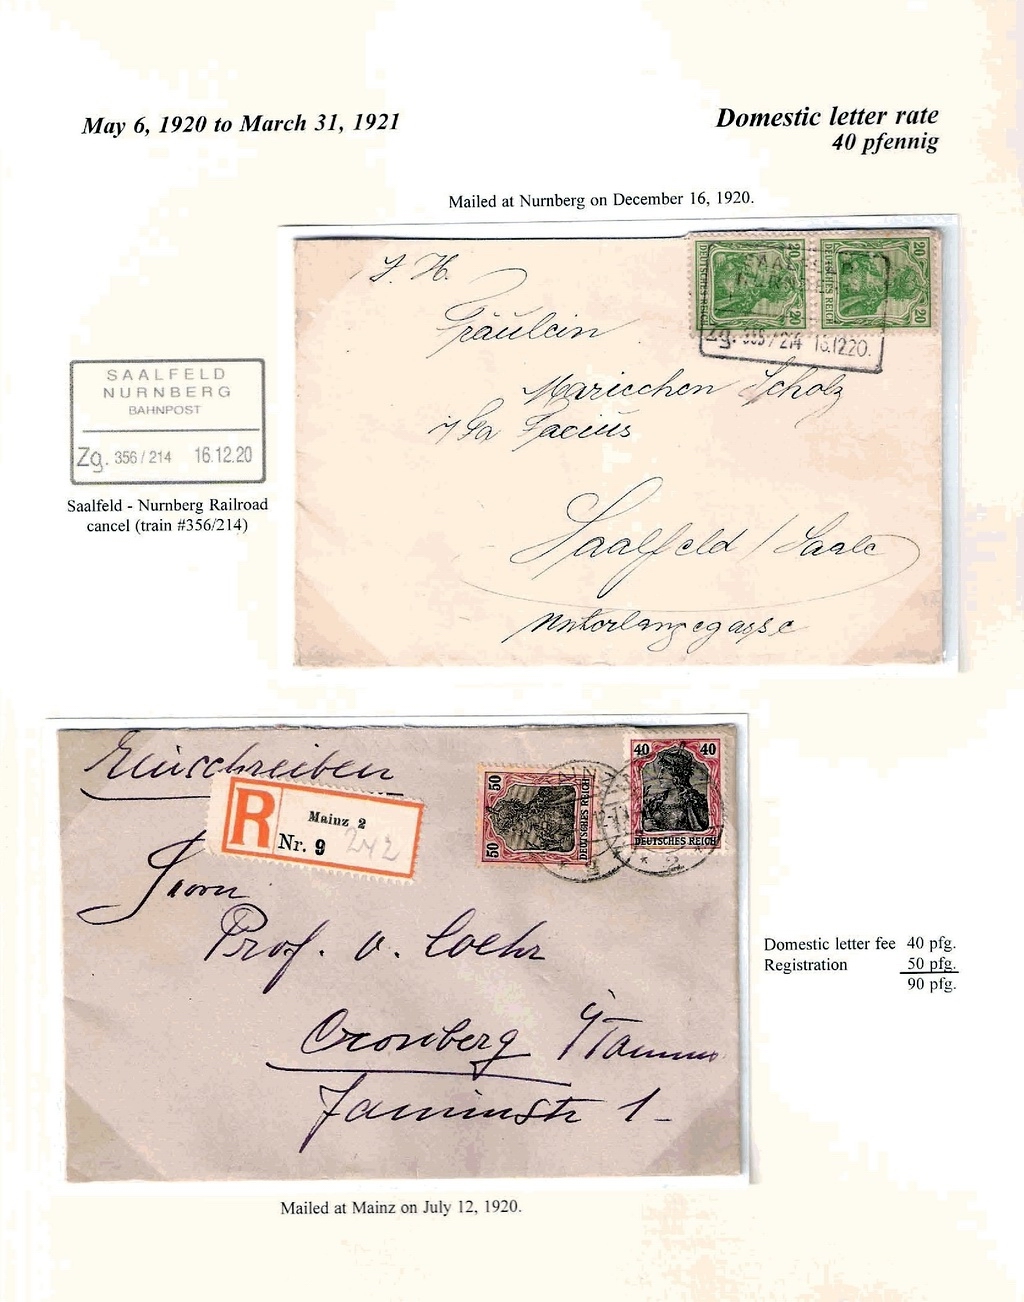 May 6, 1920 to March 31, 1921
Domestic letter rate
40 pfennig
Mailed at Nurnberg on December 16, 1920.
Fräulein
Mariechen Scholz
Saalfeld / Saale
Unterlangegasse
20 20
DEUTSCHES REICH
20 20
DEUTSCHES REICH
Zg. 356 / 214 16.12.20.
SAALFELD
NURNBERG
BAHNPOST
Zg. 356 / 214 16.12.20
Saalfeld - Nurnberg Railroad
cancel (train #356/214)
Einschreiben
R
Mainz 2
Nr. 9
242
50 50
DEUTSCHES REICH
40 40
DEUTSCHES REICH
* 2 *
Herrn
Prof. v.
Cronberg i/Taunus
1
Domestic letter fee 40 pfg.
Registration 50 pfg.
90 pfg.
Mailed at Mainz on July 12, 1920.